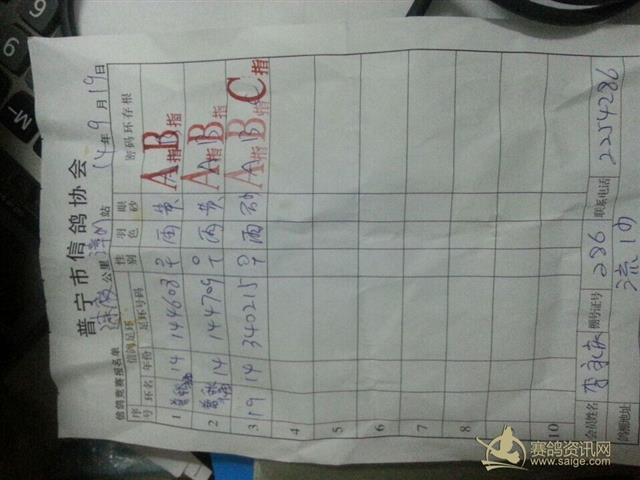 普宁市信鸽协会
信鸽竞赛报名单 公里 漳州 站 14年9月19日
序号 信鸽足环 性别 羽色 眼砂 密码环存根
环名 年份 足环号码
1 14 144608 雨 黄 A指 B指
2 14 144709 雨 黄 A指 B指
3 19 14 340215 雨 砂 A指 B指 C指
4
5
6
7
8
9
10
会员姓名 李 棚号证号 286 联系电话 2254286
鸽棚地址 流沙
赛鸽资讯网
www.saige.com